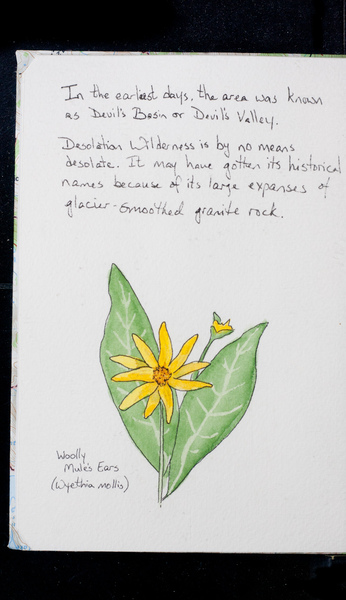 In the earliest days, the area was known
as Devil's Basin or Devil's Valley.
Desolation Wilderness is by no means
desolate. It may have gotten its historical
names because of its large expanses of
glacier-smoothed granite rock.
Woolly
Mule's Ears
(Wyethia mollis)